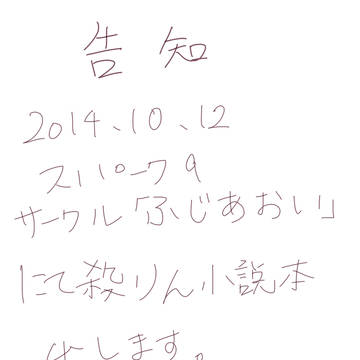 告知
2014、10、12
スパーク9
サークル「ふじあおい」
にて殺りん小説本
出します。